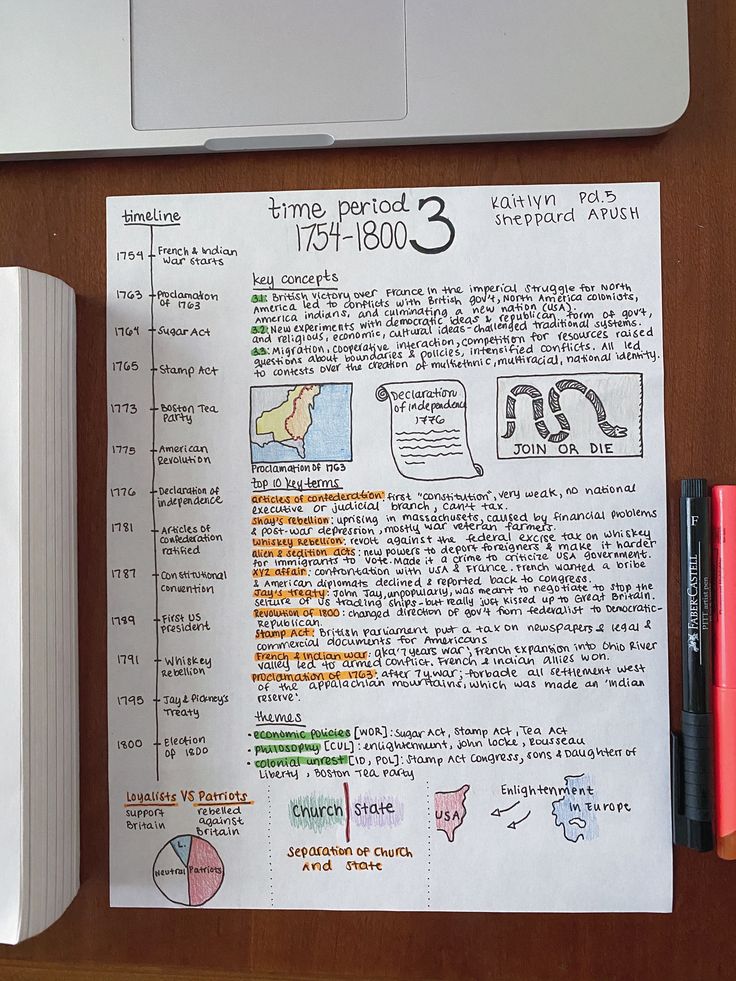 timeline
1754 French & Indian
War starts
1763 Proclamation
of 1763
1764 Sugar Act
1765 Stamp Act
1773 Boston Tea
Party
1775 American
Revolution
1776 Declaration of
independence
1781 Articles of
confederation
ratified
1787 Constitutional
convention
1789 First US
president
1791 Whiskey
Rebellion
1795 Jay & Pickney's
Treaty
1800 Election
of 1800
time period 3
1754-1800
Kaitlyn Pd.5
Sheppard APUSH
key concepts
3.1: British victory over France in the imperial struggle for North
America led to conflicts with British gov't, North America colonists,
America indians, and culminating a new nation (USA).
3.2: New experiments with democratic ideas & republican form of gov't,
and religious, economic, cultural ideas - challenged traditional systems.
3.3: Migration, cooperative interaction, competition for resources raised
questions about boundaries & policies, intensified conflicts. All led
to contests over the creation of multiethnic, multiracial, national identity.
Proclamation of 1763
Declaration
of Independence
1776
JOIN OR DIE
top 10 key terms
articles of confederation: first "constitution", very weak, no national
executive or judicial branch, can't tax.
Shay's rebellion: uprising in massachusetts, caused by financial problems
& post-war depression, mostly war veteran farmers.
Whiskey Rebellion: revolt against the federal excise tax on whiskey
alien & sedition acts: new powers to deport foreigners & make it harder
for immigrants to vote. Made it a crime to criticize USA government.
XYZ affair: confrontation with USA & France. French wanted a bribe
& American diplomats declined & reported back to congress.
Jay's treaty: John Jay, unpopularly, was meant to negotiate to stop the
seizure of US trading ships - but really just kissed up to Great Britain.
Revolution of 1800: changed direction of gov't from federalist to Democratic-
Republican.
Stamp Act: British parliament put a tax on newspapers & legal &
commercial documents for Americans
French & Indian war: aka '7 years war'; French expansion into Ohio River
valley led to armed conflict. French & Indian allies won.
proclamation of 1763: after 7y war; forbade all settlement west
of the appalachian mountains, which was made an 'indian
reserve'.
themes
• economic policies [WOR]: Sugar Act, Stamp Act, Tea Act
• philosophy [CUL]: enlightenment, john locke, Rousseau
• colonial unrest [ID, POL]: Stamp Act Congress, sons & Daughters of
Liberty, Boston Tea Party
Loyalists VS Patriots
support
Britain
rebelled
against
Britain
L.
Neutral
Patriots
Church State
Separation of Church
And State
USA
Enlightenment
in Europe
F
FABER-CASTELL
PITT artist pen